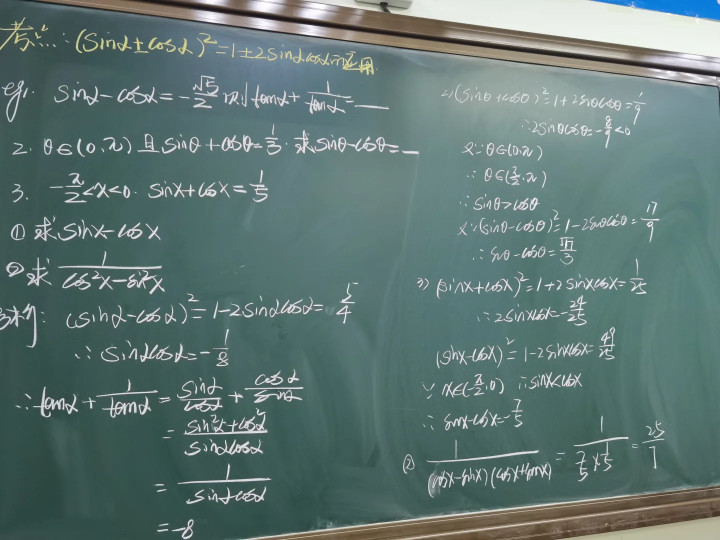 考点:(sinα±cosα)²=1±2sinαcosα的应用
eg1. sinα-cosα=-√5/2 则 tanα+1/tanα=___
2. θ∈(0,π) 且 sinθ+cosθ=1/3. 求 sinθ-cosθ=_
3. -π/2<x<0. sinx+cosx=1/5
① 求 sinx-cosx
② 求 1/(cos²x-sin²x)
解析: (sinα-cosα)²=1-2sinαcosα=5/4
∴ sinαcosα=-1/8
∴ tanα+1/tanα=sinα/cosα+cosα/sinα
=(sin²α+cos²α)/(sinαcosα)
=1/(sinαcosα)
=-8
2) (sinθ+cosθ)²=1+2sinθcosθ=1/9
∴2sinθcosθ=-8/9<0
又∵θ∈(0,π)
∴θ∈(π/2,π)
∴sinθ>cosθ
又∵(sinθ-cosθ)²=1-2sinθcosθ=17/9
∴sinθ-cosθ=√17/3
3) (sinx+cosx)²=1+2sinxcosx=1/25
∴2sinxcosx=-24/25
(sinx-cosx)²=1-2sinxcosx=49/25
∵x∈(-π/2,0) ∴sinx<cosx
∴sinx-cosx=-7/5
② 1/((cosx-sinx)(cosx+sinx))=1/(7/5×1/5)=25/7